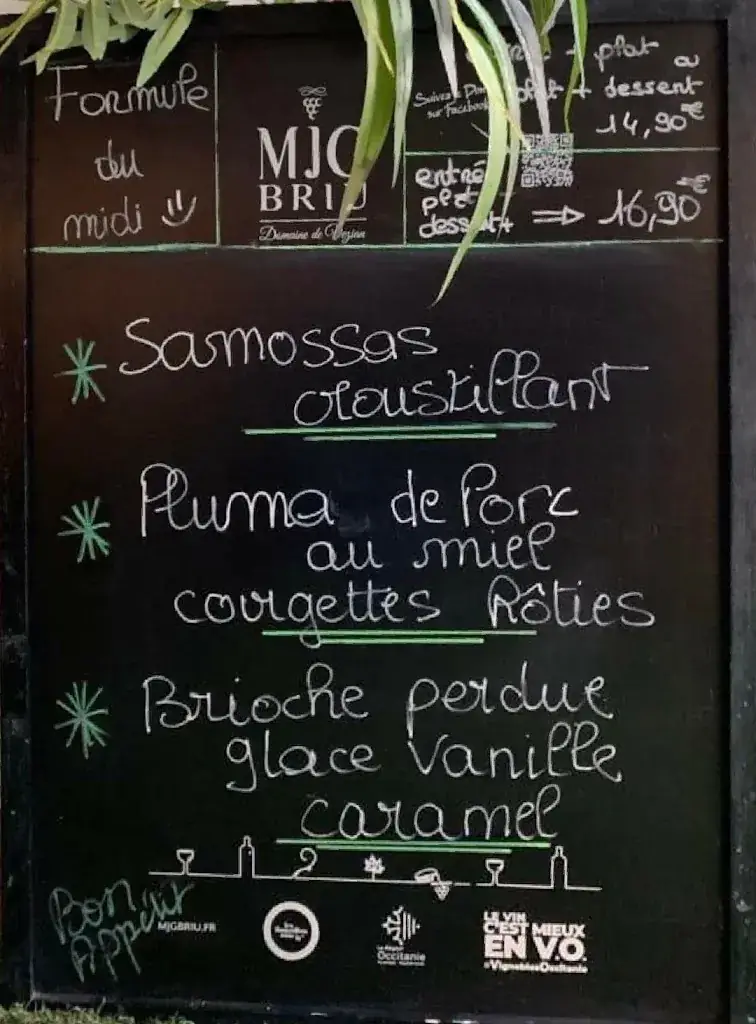 Formule
du
midi
MJG
BRIU
Domaine de
Suivez
sur Facebook
+ plat
ou
+ dessert
14,90€
entrée
plat
dessert
⇒ 16,90€
* Samossas
croustillant
* Pluma de Porc
au miel
courgettes Rôties
* Brioche perdue
glace vanille
caramel
Bon
Appétit
MJGBRIU.FR
La Région
Occitanie
LE VIN
C'EST MIEUX
EN V.O.
#VignoblesOccitanie